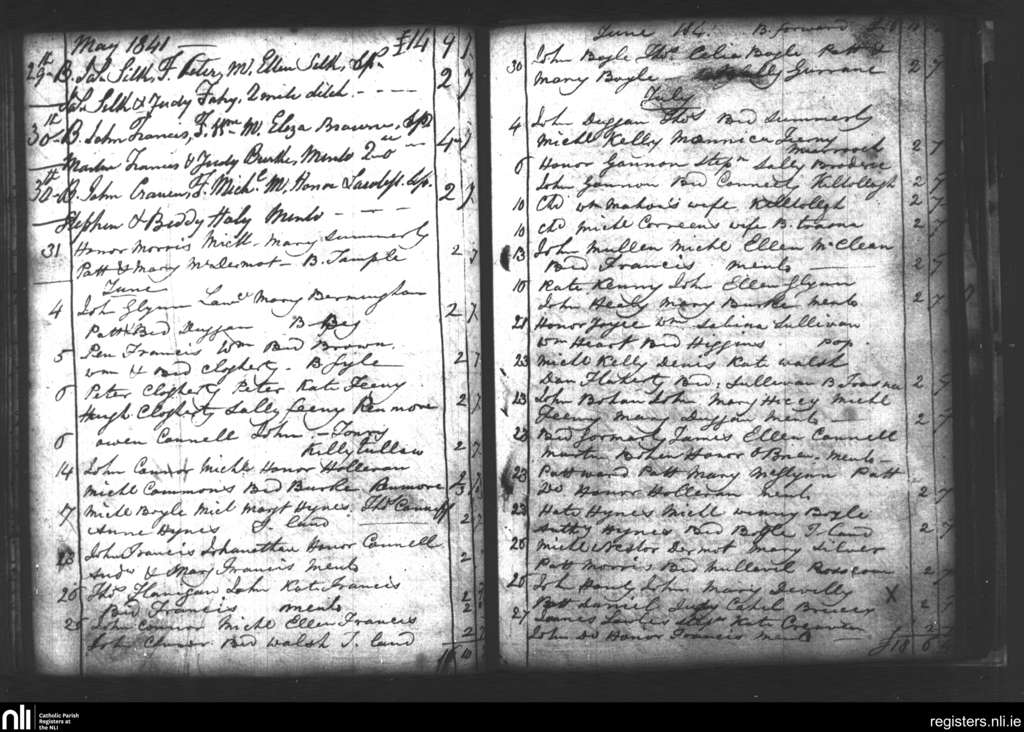 May 1841 £14 9 7
29th B. Jas. Silk, F. Peter, M. Ellen Silk, Sps. 2 7
Jas. Silk & Judy Fahy. 2 mile ditch
30th B. John Francis, F. Wm. M. Eliza Brown, Sps. 4
Martin Francis & Judy Burke, Menlo
30th B. John Craven, F. Michl. M. Honor Lawless. Sp. 2 7
Stephen & Biddy Haly Menlo
31 Honor Morris Michl. Mary Summerly 2 7
Patt & Mary McDermot - B. Temple
June
4 Joh Glynn Lawc. Mary Bermingham 2 7
Patt & Bid Duggan B. Beg
5 Pen Francis Wm Bid Brown 2 7
Wm & Bid Cloherty
6 Peter Cloherty Peter Kat Feeny 2 7
Hugh Cloherty Sally Feeny Renmore
6 Owen Connell John 2 7
Killytullow
14 John Connor Michl Honor Holleran
Michl Commons Bid Burke Renmore
17 Michl Boyle Michl Margt Hynes, Thos 2 7
Anne Hynes T. land
23 John Francis Johanathan Honor Connell 2
Andw & Mary Francis Menlo
26 Thos Flanigan John Kate Francis 2
Bid Francis Menlo
John Connor Michl Ellen Francis 2
John Bid Walsh T. land
June 184 B. forward
30 John Boyle Thos. Celia Boyle Patt & 2 7
Mary Boyle Gurrane
July
4 John Duggan Thos Bid Summerly
Michl Kelly 2 7
6 Honor Gannon Stepn Sally Broderic
John Gannon Bid Connelly Killtullagh 2 7
10 Chd Wm Mahon's wife Killtullagh 2
10 Chd Michl wife B. traona 2 7
13 John Mullen Michl Ellen McClean
Bid Francis Menlo 2 7
Kate Kenny John Ellen Glynn
John Healy Mary Burke Menlo 2 7
21 Honor Joyce Wm Sabina Sullivan
Wm Heart Bid Higgins. Pop.
23 Michl Kelly Denis Kat Walsh
Dan Flaherty Bid. Sullivan B. Trasna 2 7
23 John Bohan John Mary Hicey Michl
Feeny Mary Duggan Menlo 2 7
23 Bid Gormarly James Ellen Connell
Martin Bohen Honor O Brien. Menlo
23 Patt Ward Patt Mary McGlynn Patt
Do Honor Holleran Menlo 2 7
23 Kate Hynes Michl Boyle
Anthy Hynes Bid Boyle T. land 2 7
26 Michl Nestor Dermot Mary Silver
Patt Morris Bid Mullavil Roscom 2 7
26 John Handy John Mary Devilly
Patt Daniel Judy Cahil X 2
27 James Lawless Kate
John Do Honor Francis Menlo 2
£18
nli Catholic Parish
Registers at
the NLI
registers.nli.ie